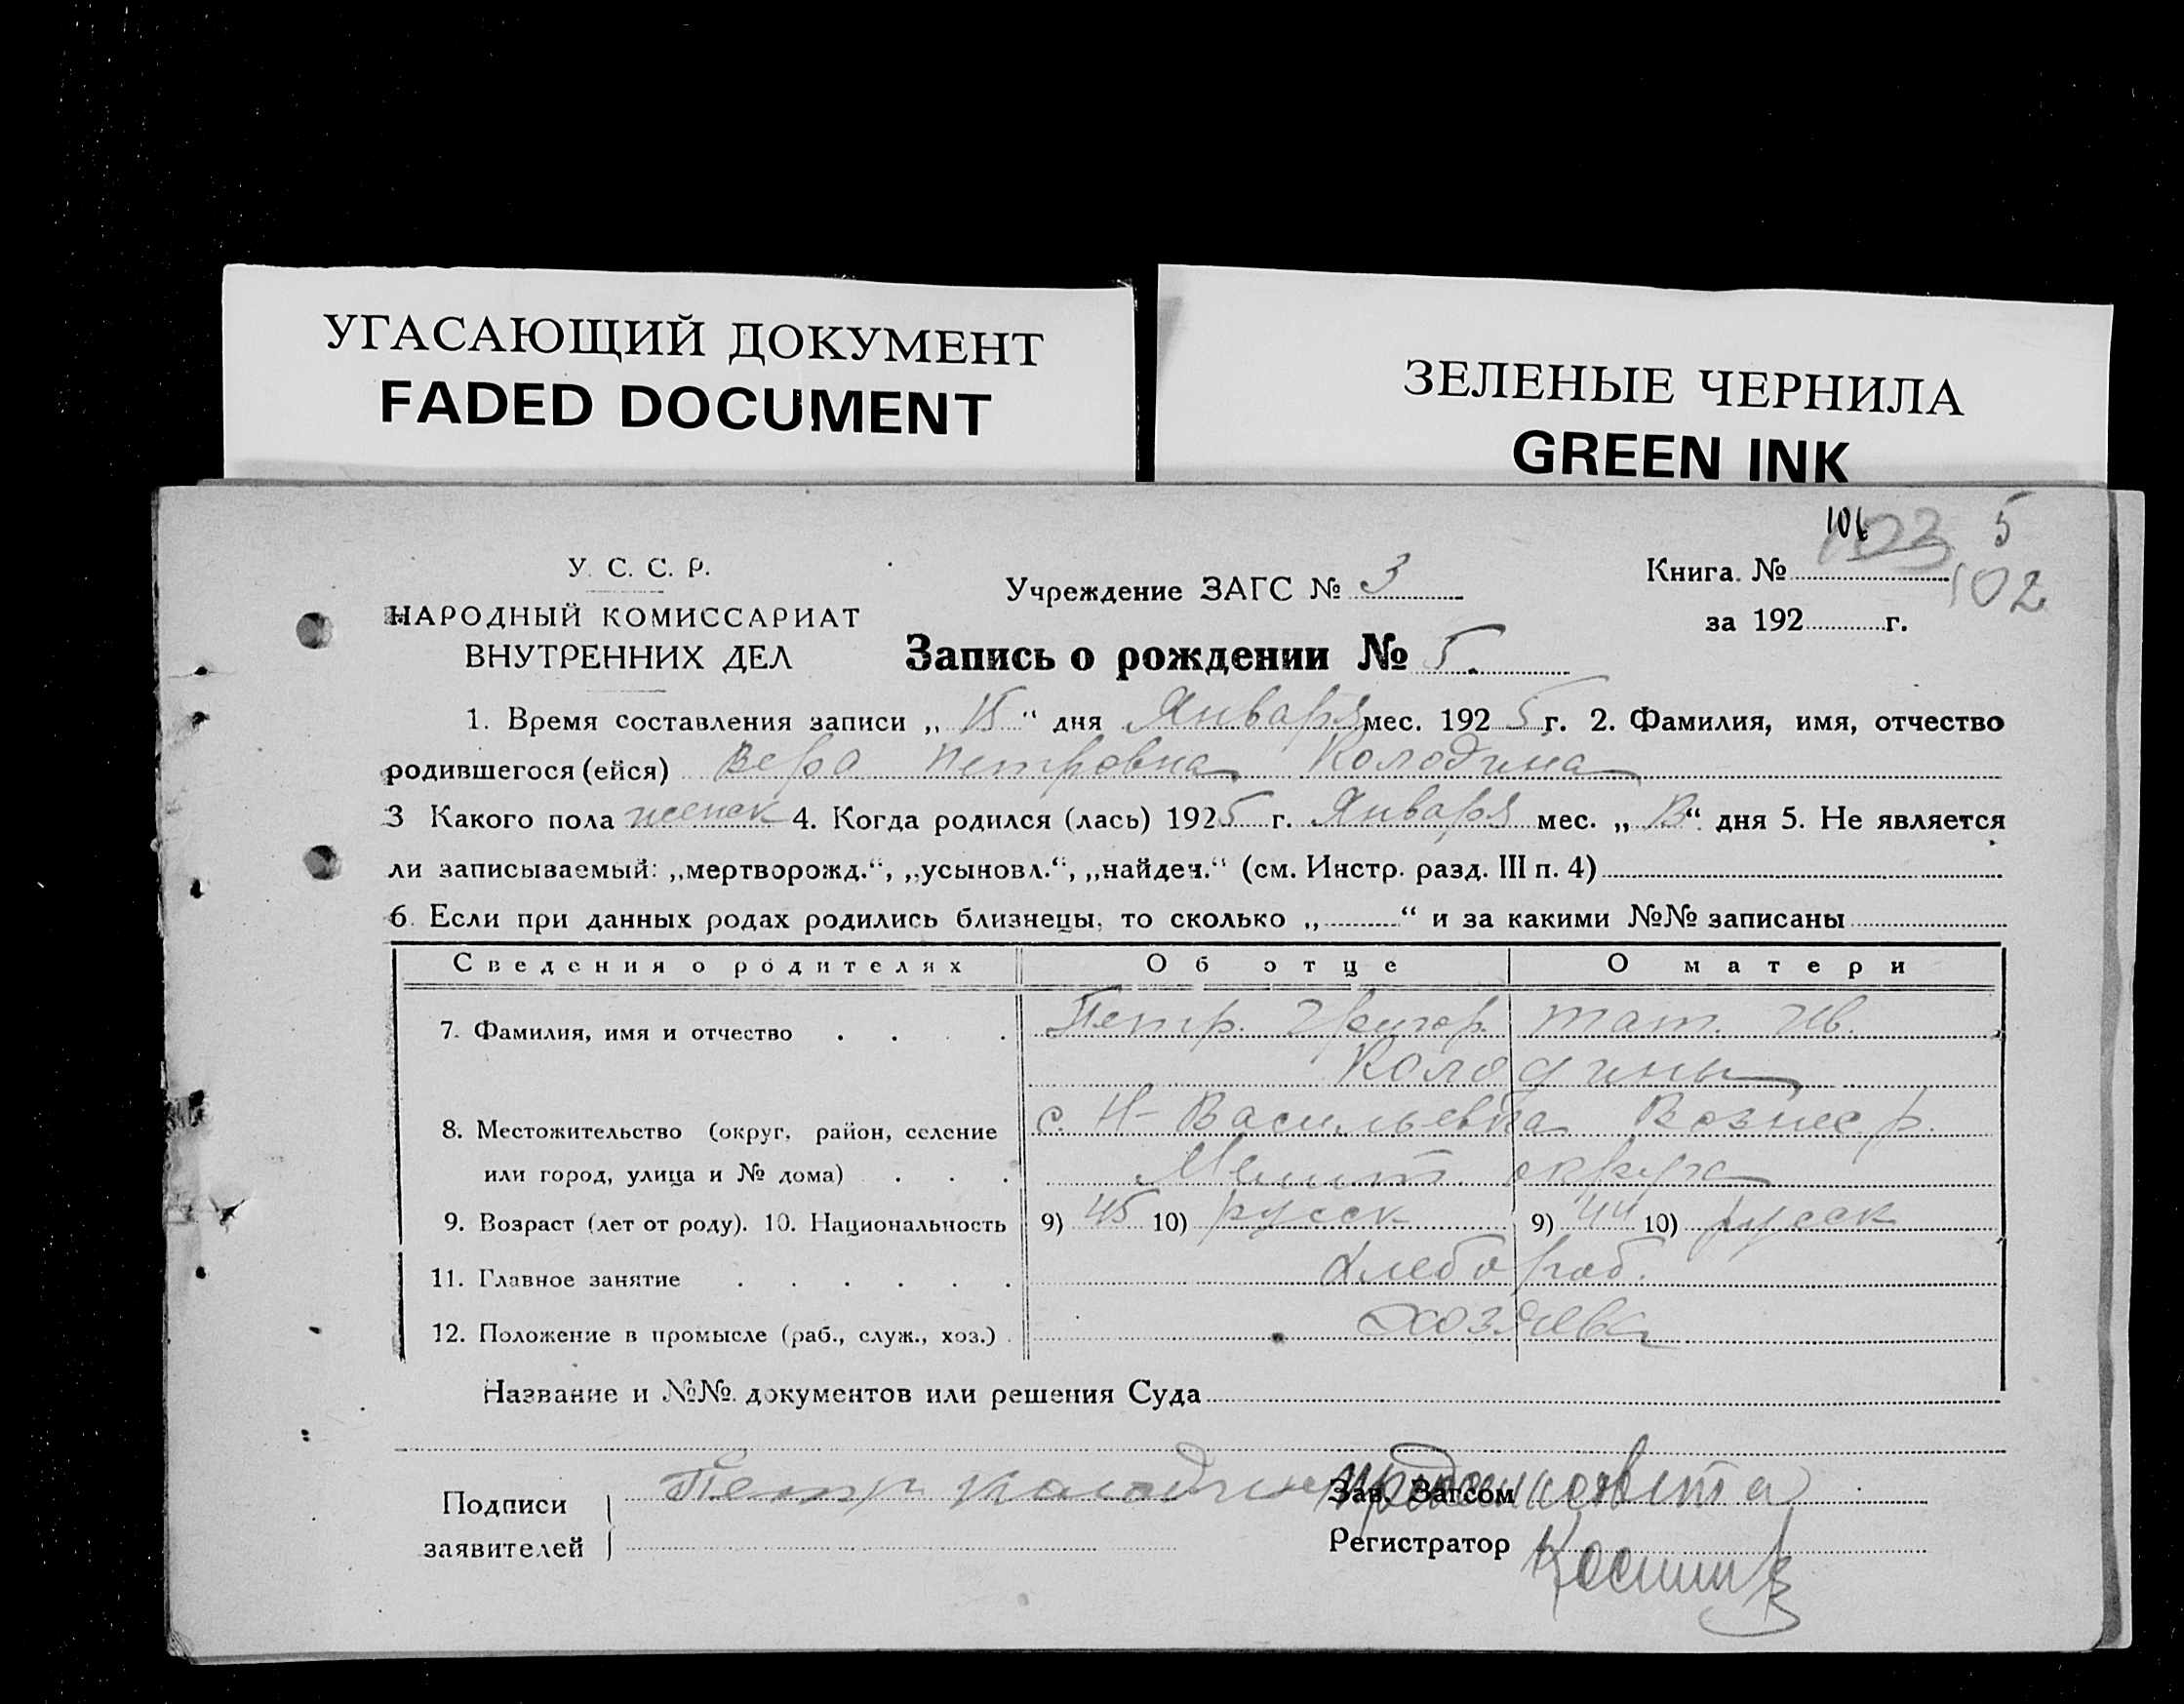 УГАСАЮЩИЙ ДОКУМЕНТ
FADED DOCUMENT
ЗЕЛЕНЫЕ ЧЕРНИЛА
GREEN INK
106 103 5
102
У. С. С. Р.
НАРОДНЫЙ КОМИССАРИАТ
ВНУТРЕННИХ ДЕЛ
Учреждение ЗАГС № 3
Книга. №
за 192 г.
Запись о рождении № 5.
1. Время составления записи „ 15 “ дня Января мес. 192 5 г. 2. Фамилия, имя, отчество
родившегося (ейся) Вера Петровна Колодина
3 Какого пола женск 4. Когда родился (лась) 192 5 г. Января мес. „ “ дня 5. Не является
ли записываемый: „мертворожд.“, „усыновл.“, „найден.“ (см. Инстр. разд. III п. 4)
6. Если при данных родах родились близнецы, то сколько „ “ и за какими №№ записаны
Сведения о родителях Об отце О матери
7. Фамилия, имя и отчество Петр. Григор. Тат. Ив.
Колодины
8. Местожительство (округ, район, селение с. Н-Васильевка Вознес р.
или город, улица и № дома) Мелит. округа
9. Возраст (лет от роду). 10. Национальность 9) 45 10) русск 9) 44 10) русск
11. Главное занятие Хлебороб.
12. Положение в промысле (раб., служ., хоз.) хозяева
Название и №№ документов или решения Суда
Подписи
заявителей
Петр
Зав. Загсом
Регистратор